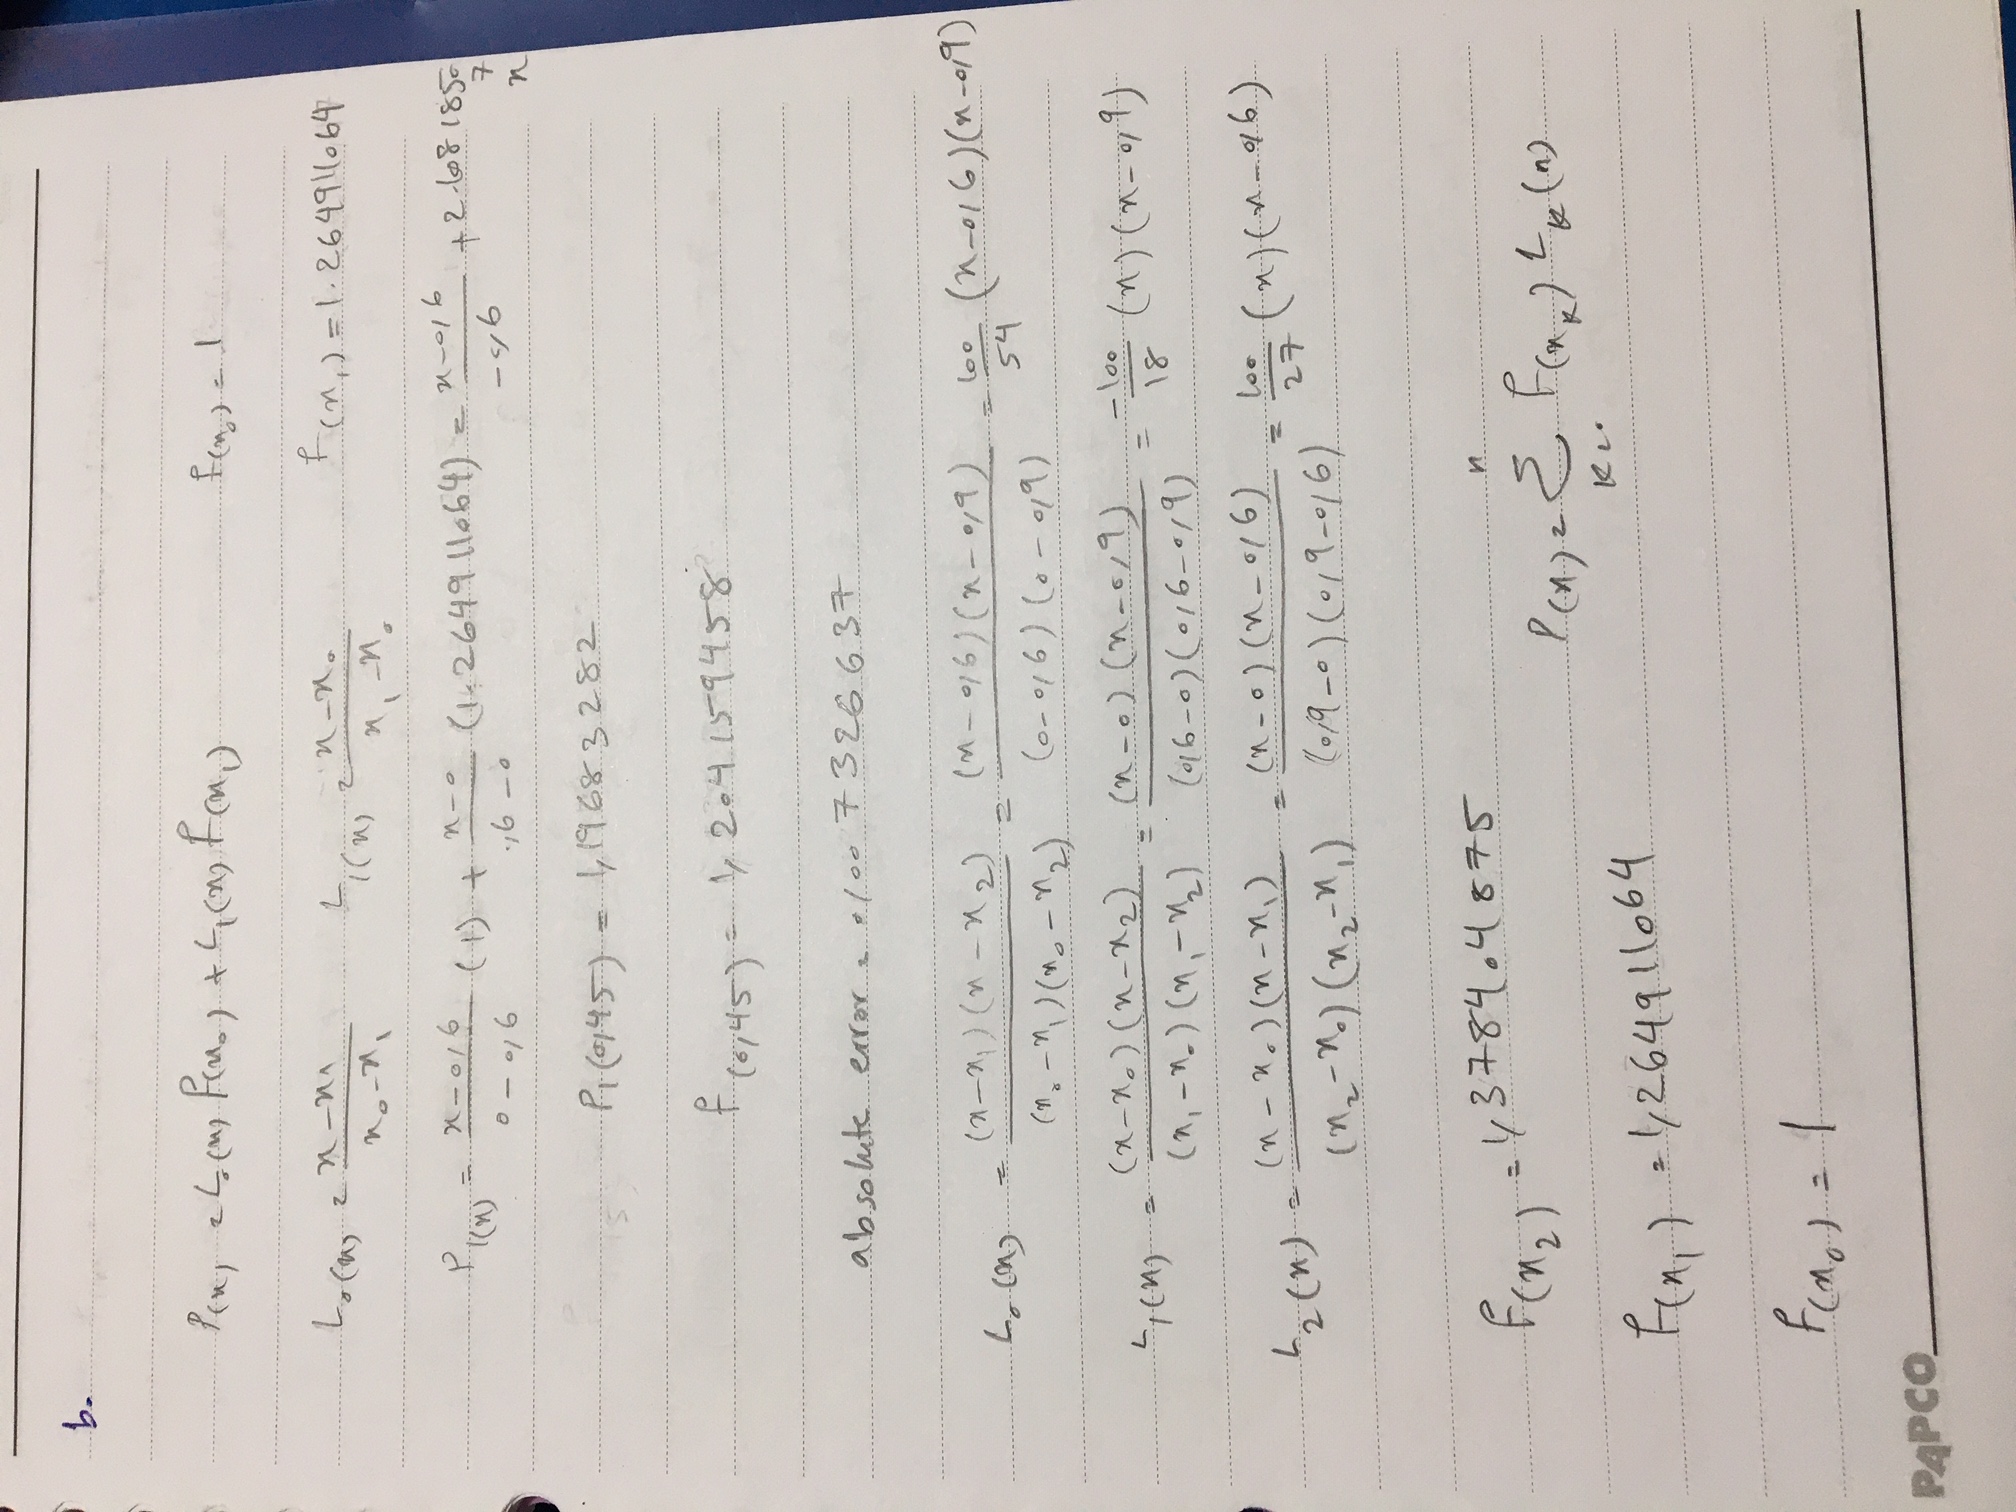 b.
P(x) = L₀(x) f(x₀) + L₁(x) f(x₁) f(x₀) = 1
L₀(x) = (x-x₁)/(x₀-x₁) L₁(x) = (x-x₀)/(x₁-x₀) f(x₁) = 1.264911064
P₁(x) = (x-0,6)/(0-0,6) (1) + (x-0)/(,6-0) (1.264911064) = (x-0,6)/(-0,6) + 2.1081850 7 x
P₁(0,45) = 1,19683282
f(0,45) = 1,204159458
absolute error = 0,007326637
L₀(x) = (x-x₁)(x-x₂)/(x₀-x₁)(x₀-x₂) = (x-0,6)(x-0,9)/(0-0,6)(0-0,9) = 100/54 (x-0,6)(x-0,9)
L₁(x) = (x-x₀)(x-x₂)/(x₁-x₀)(x₁-x₂) = (x-0)(x-0,9)/(0,6-0)(0,6-0,9) = -100/18 (x)(x-0,9)
L₂(x) = (x-x₀)(x-x₁)/(x₂-x₀)(x₂-x₁) = (x-0)(x-0,6)/(0,9-0)(0,9-0,6) = 100/27 (x)(x-0,6)
f(x₂) = 1,378404875
P(x) = Σ n k=0 f(xₖ) Lₖ(x)
f(x₁) = 1,264911064
f(x₀) = 1
PAPCO